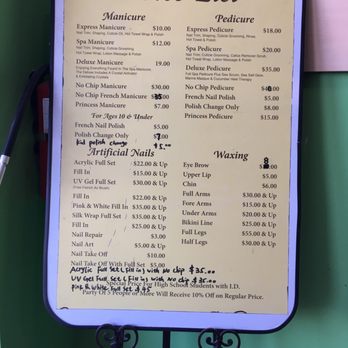 List
Manicure
Express Manicure $10.00
Nail Trim, Shaping, Cuticle Oil, Hot Towel Wrap & Polish
Spa Manicure $12.00
Nail Trim, Shaping, Cuticle Grooming,
Hot Towel Wrap, Lotion Massage & Polish
Deluxe Manicure 19.00
Enjoying Everything Found In The Spa Manicure
The Deluxe Includes A Crystal
& Exfoliating Crystals
No Chip Manicure $30.00
No Chip French Manicure
Princess Manicure $7.00
For Ages 10 & Under
French Nail Polish $5.00
Polish Change Only
kid polish change $5.00
Pedicure
Express Pedicure $18.00
Nail Trim, Shaping, Cuticle Grooming, Rinse,
Hot Towel & Polish
Spa Pedicure $20.00
Nail Trim, Shaping, Cuticle Grooming, Callus Remover Scrub,
Hot Towel Wrap, Lotion Massage & Polish
Deluxe Pedicure $35.00
Full Spa Pedicure Plus Sea Scrub, Sea Salt Glow,
Marine Masque & Cucumber Heel Therapy
No Chip Pedicure
French Nail Polish $5.00
Polish Change Only $8.00
Princess Pedicure $15.00
Artificial Nails
Acrylic Full Set $22.00 & Up
Fill In $15.00 & Up
UV Gel Full Set $30.00 & Up
(Free French Air Brush)
Fill In $22.00 & Up
Pink & White Fill In $35.00 & Up
Silk Wrap Full Set $35.00 & Up
Fill In $25.00 & Up
Nail Repair $3.00
Nail Art $5.00 & Up
Nail Take Off $10.00
Nail Take Off With Full Set $5.00
Waxing
Eye Brow
Upper Lip $5.00
Chin $6.00
Full Arms $30.00 & Up
Fore Arms $15.00 & Up
Under Arms $20.00 & Up
Bikini Line $25.00 & Up
Full Legs $55.00 & Up
Half Legs $30.00 & Up
Acrylic Full Set (Fill in) with No chip $35.00
UV Gel Full Set (Fill in) with No chip $35.00
pink & white Full set $45
Special Price For High School Students with I.D.
Party Of 5 People or More Will Receive 10% Off on Regular Price.